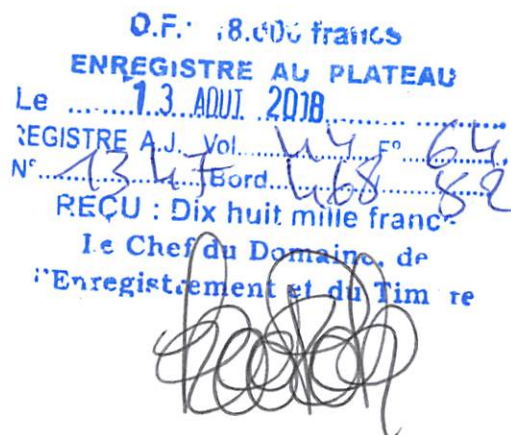 O.F.: 18.000 francs
ENREGISTRE AU PLATEAU
Le ........13 AOUT 2018.......................
REGISTRE A.J. Vol.......44....F°....64....
N°......1347......Bord....468......82
REÇU : Dix huit mille francs
Le Chef du Domaine, de
l'Enregistrement et du Timbre